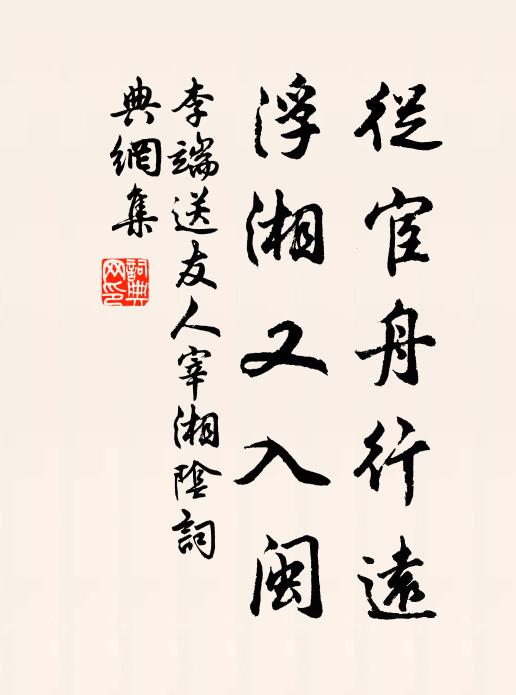 從宦舟行遠
浮湘又入閩
李端送友人宰湘陰詞
典網集
詞典
网印